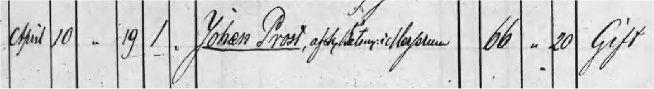 April 10 " 19 1. Johan Prost, 66 " 20 Gift